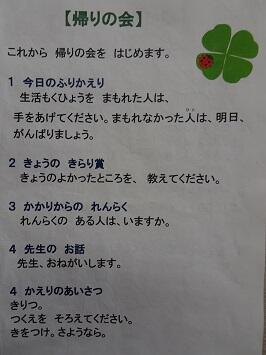 【帰りの会】
これから 帰りの会を はじめます。
1 今日のふりかえり
生活もくひょうを まもれた人は、
手をあげてください。まもれなかった人は、明日、
がんばりましょう。
2 きょうの きらり賞
きょうのよかったところを、 教えてください。
3 かかりからの れんらく
れんらくの ある人は、いますか。
4 先生の お話
先生、おねがいします。
4 かえりのあいさつ
きりつ。
つくえを そろえてください。
きをつけ。さようなら。